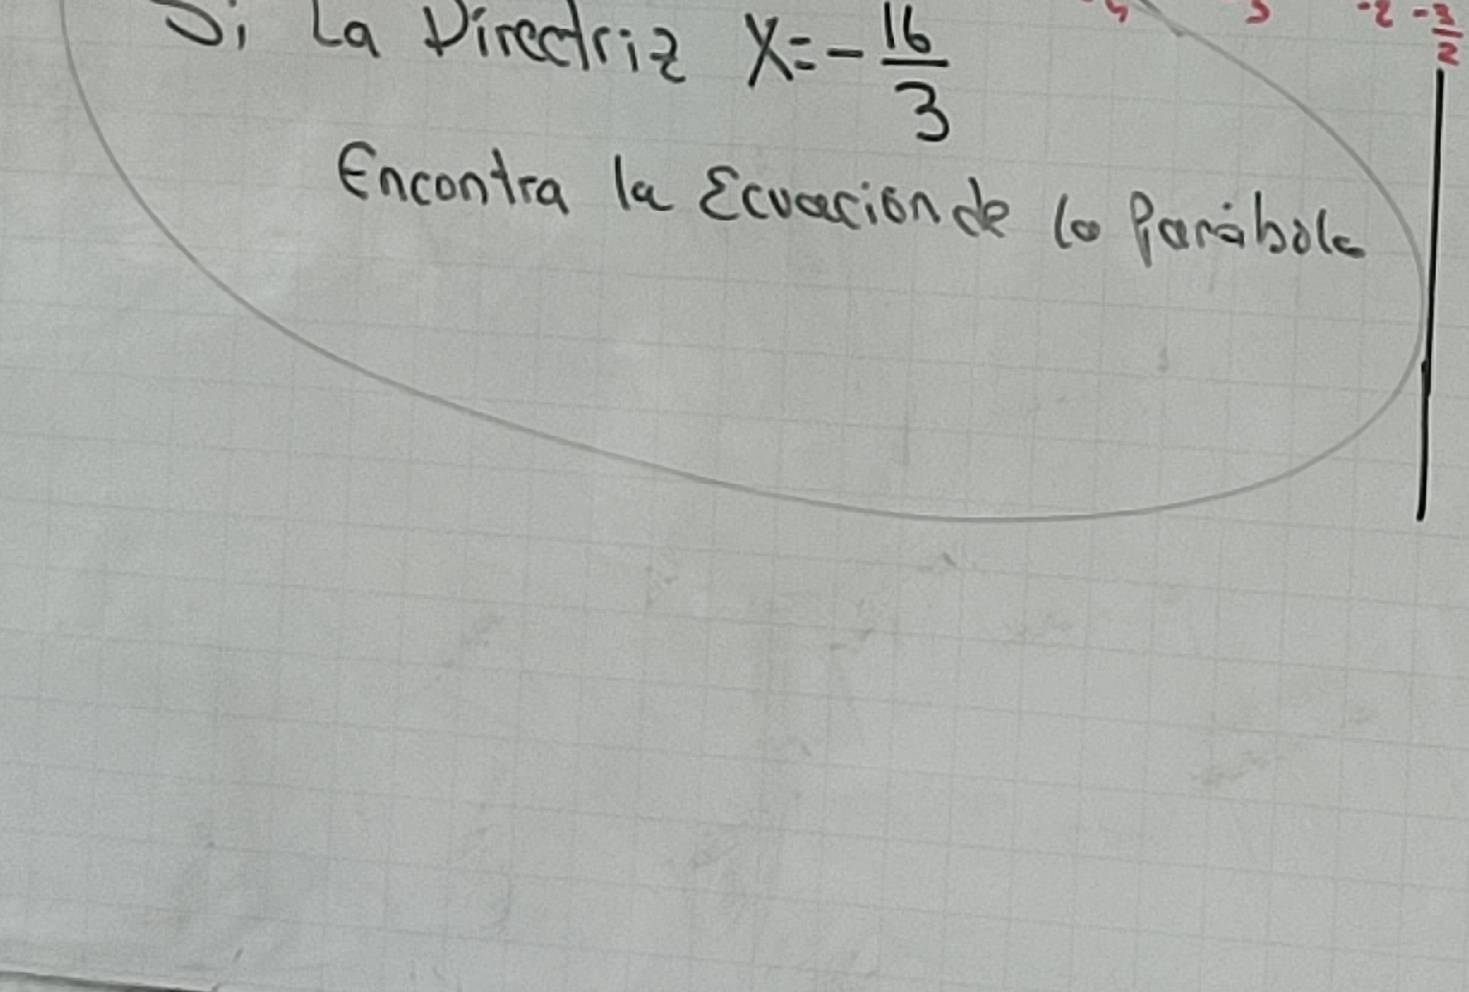 Si La Directriz X = - 16/3
Encontra la Ecuacion de la Parábola
-2 -3/2